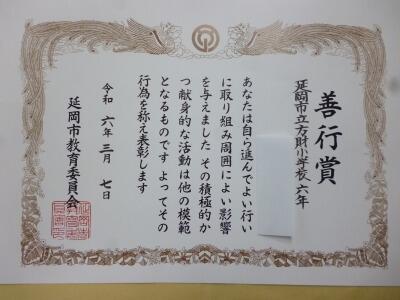 善行賞
延岡市立方財小学校 六年
あなたは自ら進んでよい行い
に取り組み周囲によい影響
を与えました その積極的か
つ献身的な活動は他の模範
となるものです よってその
行為を称え表彰します
令和 六年 三月 七日
延岡市教育委員会